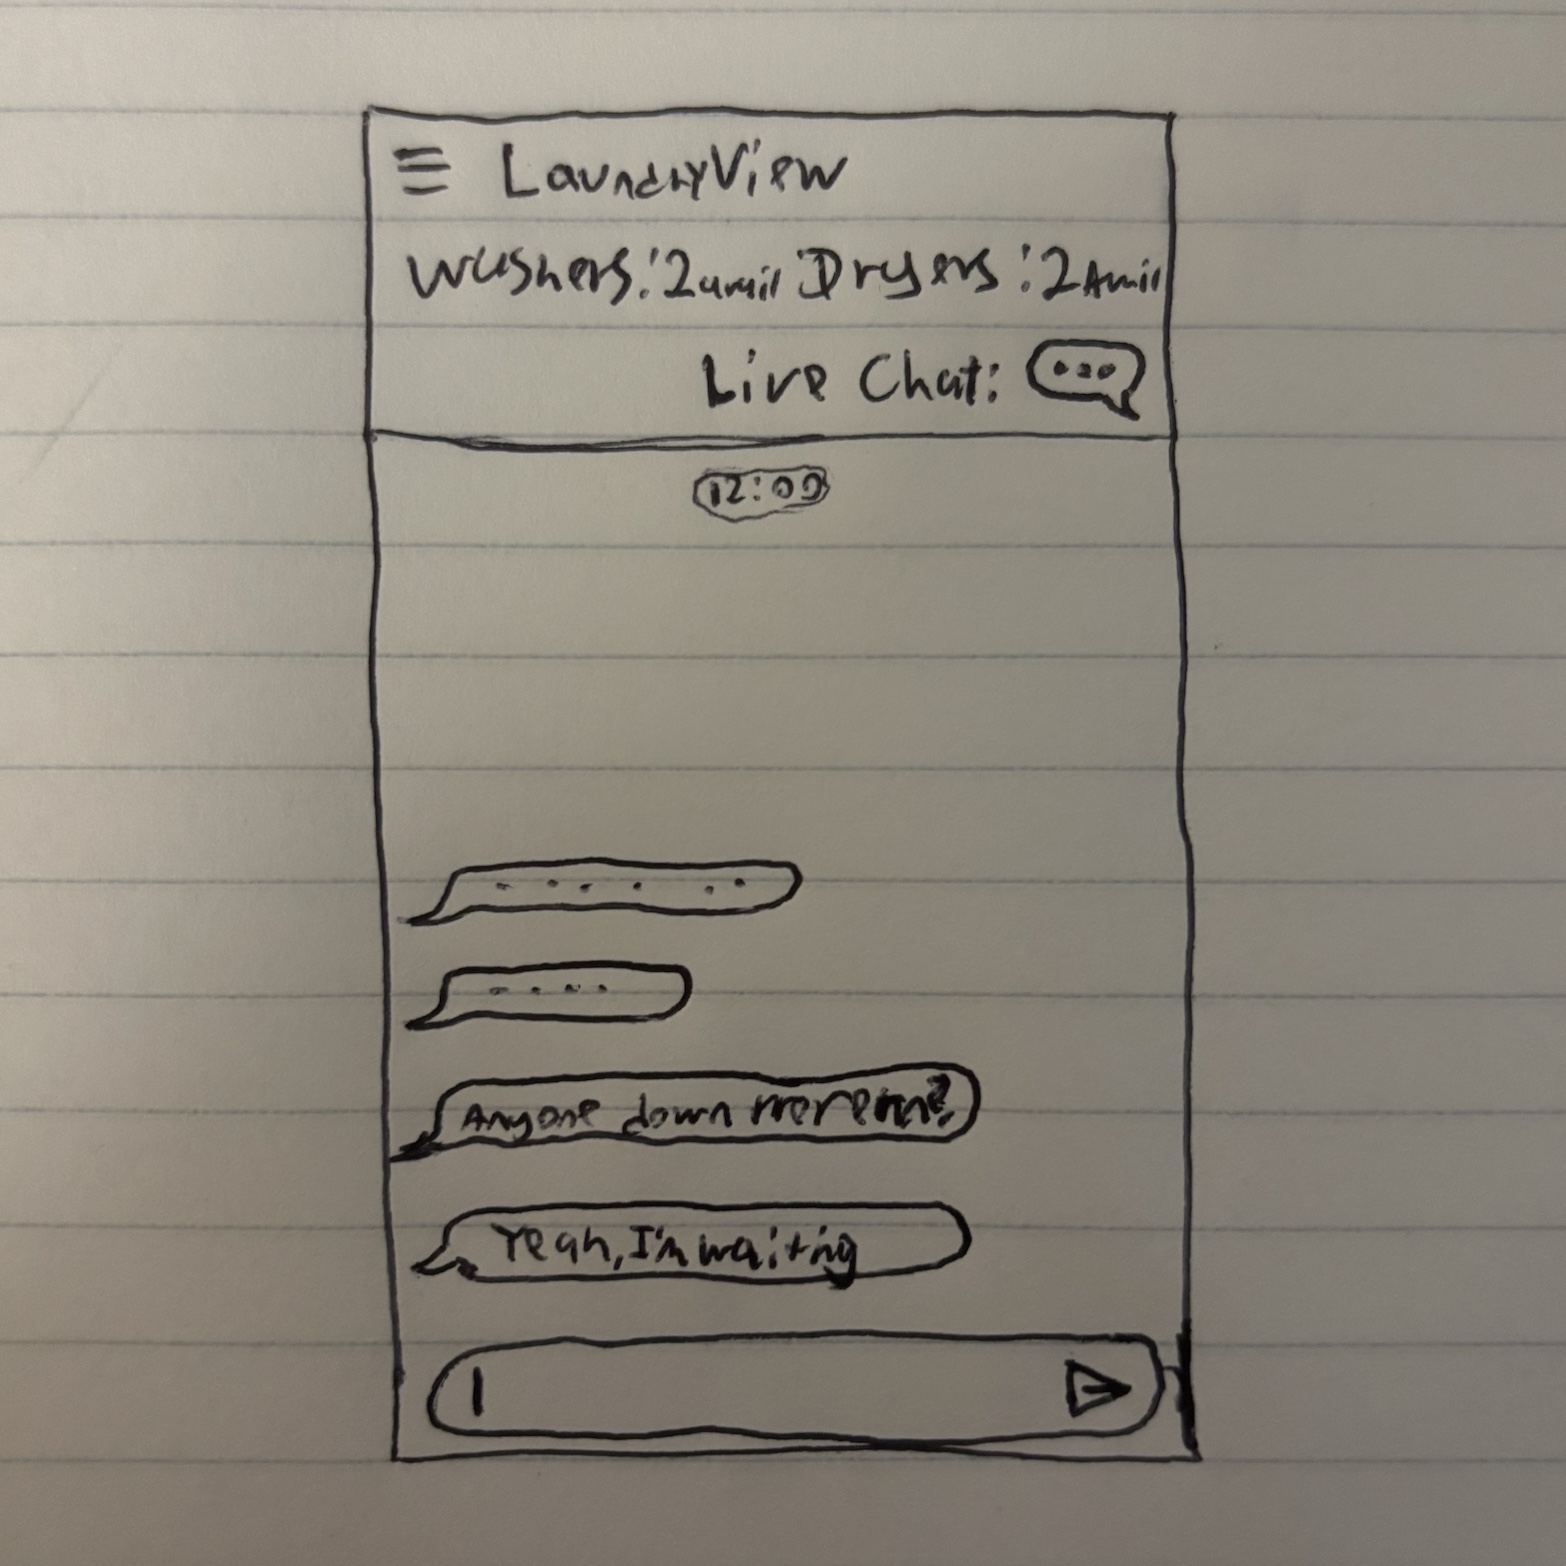 LaundryView
Washers: 2 avail Dryers: 2 Avail
Live Chat:
12:00
Anyone down
Yeah, I'm waiting